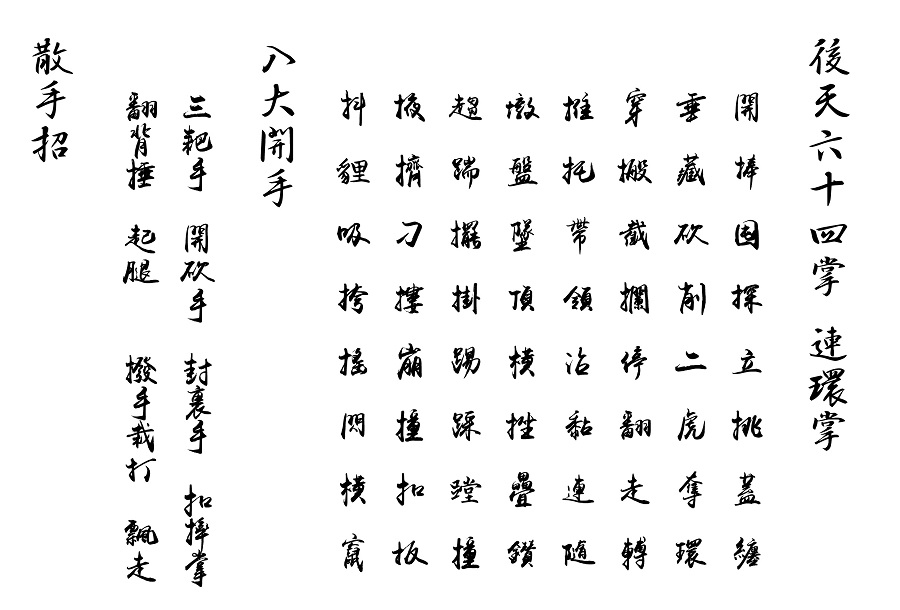 後天六十四掌 連環掌
開捧困探立挑蓋纏
垂藏砍削二虎奪環
穿搬截攔停翻走轉
推托帶領沾黏連隨
墩盤墜頂橫挫疊鑽
趨踹擺掛踢踩蹚撞
掖擠刁摟崩撞扣扳
抖貍吸挎搖閃橫竄
八大開手
三靶手 開砍手 封裹手 扣摔掌
翻背捶 起腿 撥手栽打 飄走
散手招